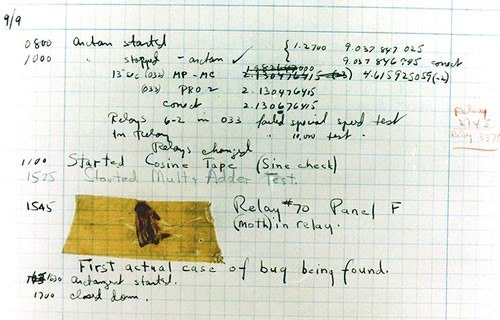 9/9
0800 Antan started { 1.2700 9.037 847 025
1000 " stopped - antan ✓ 9.037 846 995 correct
13"uc (032) MP - MC 2.130476415 4.615925059(-2)
(033) PRO 2 2.130476415
correct 2.130676415
Relays 6-2 in 033 failed special speed test
in relay " 10,000 test .
Relays changed
Relay
2145
Relay 3370
1100 Started Cosine Tape (Sine check)
1525 Started Mult+Adder Test.
1545 Relay #70 Panel F
(moth) in relay.
First actual case of bug being found.
1630 antangent started.
1700 closed down .